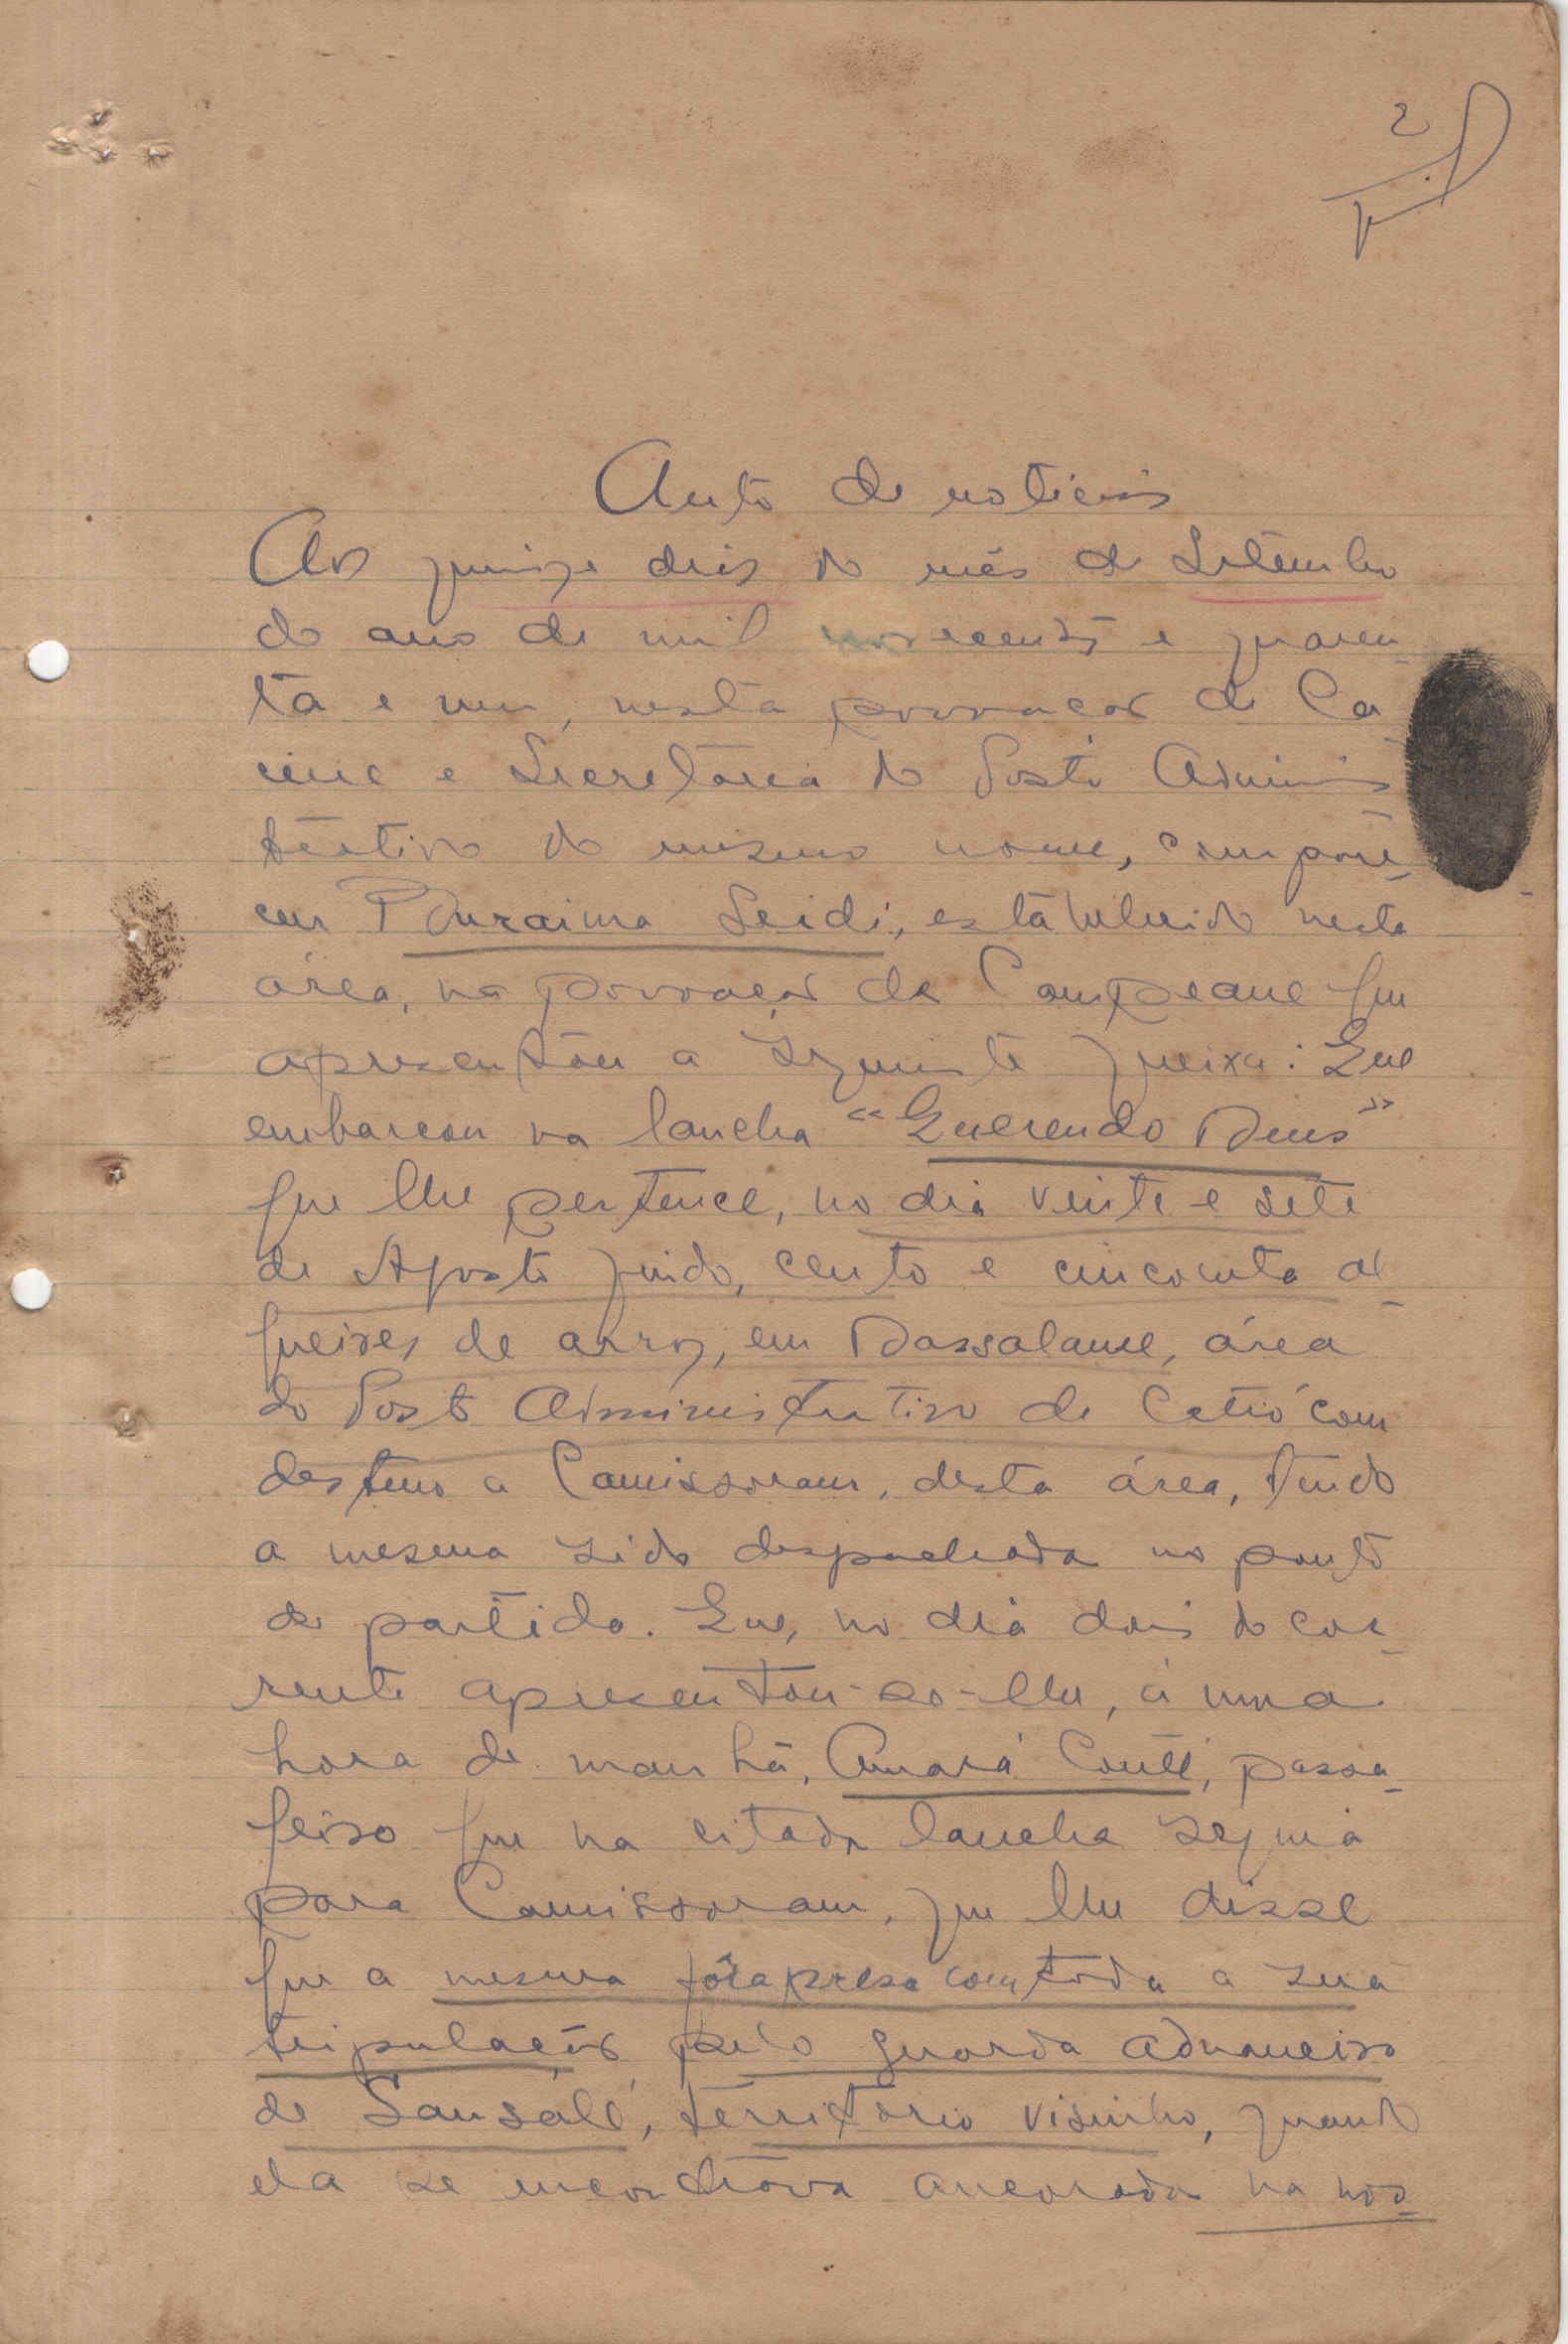 2
Auto de noticias
Aos quinze dias do mês de Setembro
do ano de mil novecentos e quaren-
ta e um, nesta povoação de Ca-
cine e Secretaria do Posto Adminis
trativo do mesmo nome, compare-
ceu Ouraima Seidi, estabelecido nesta
área, na povoação de Campeane que
apresentou a seguinte queixa: Que
embarcou na lancha "Querendo Deus"
que lhe pertence, no dia vinte e sete
de Agosto findo, cento e cincoenta al-
queires de arroz, em Dassalame, área
do Posto Administrativo de Catió com
destino a Camissoram, desta área, tendo
a mesma sido despachada no ponto
de partida. Que, no dia dois do cor-
rente apresentou-se-lhe, á uma
hora de manhã, Amará Conté, passa-
geiro que na citada lancha seguia
para Camissoram, que lhe disse
que a mesma fôra presa com toda a sua
tripulação pelo guarda aduaneiro
de Sansalé, território visinho, quando
ela se encontrava ancorada na nos-